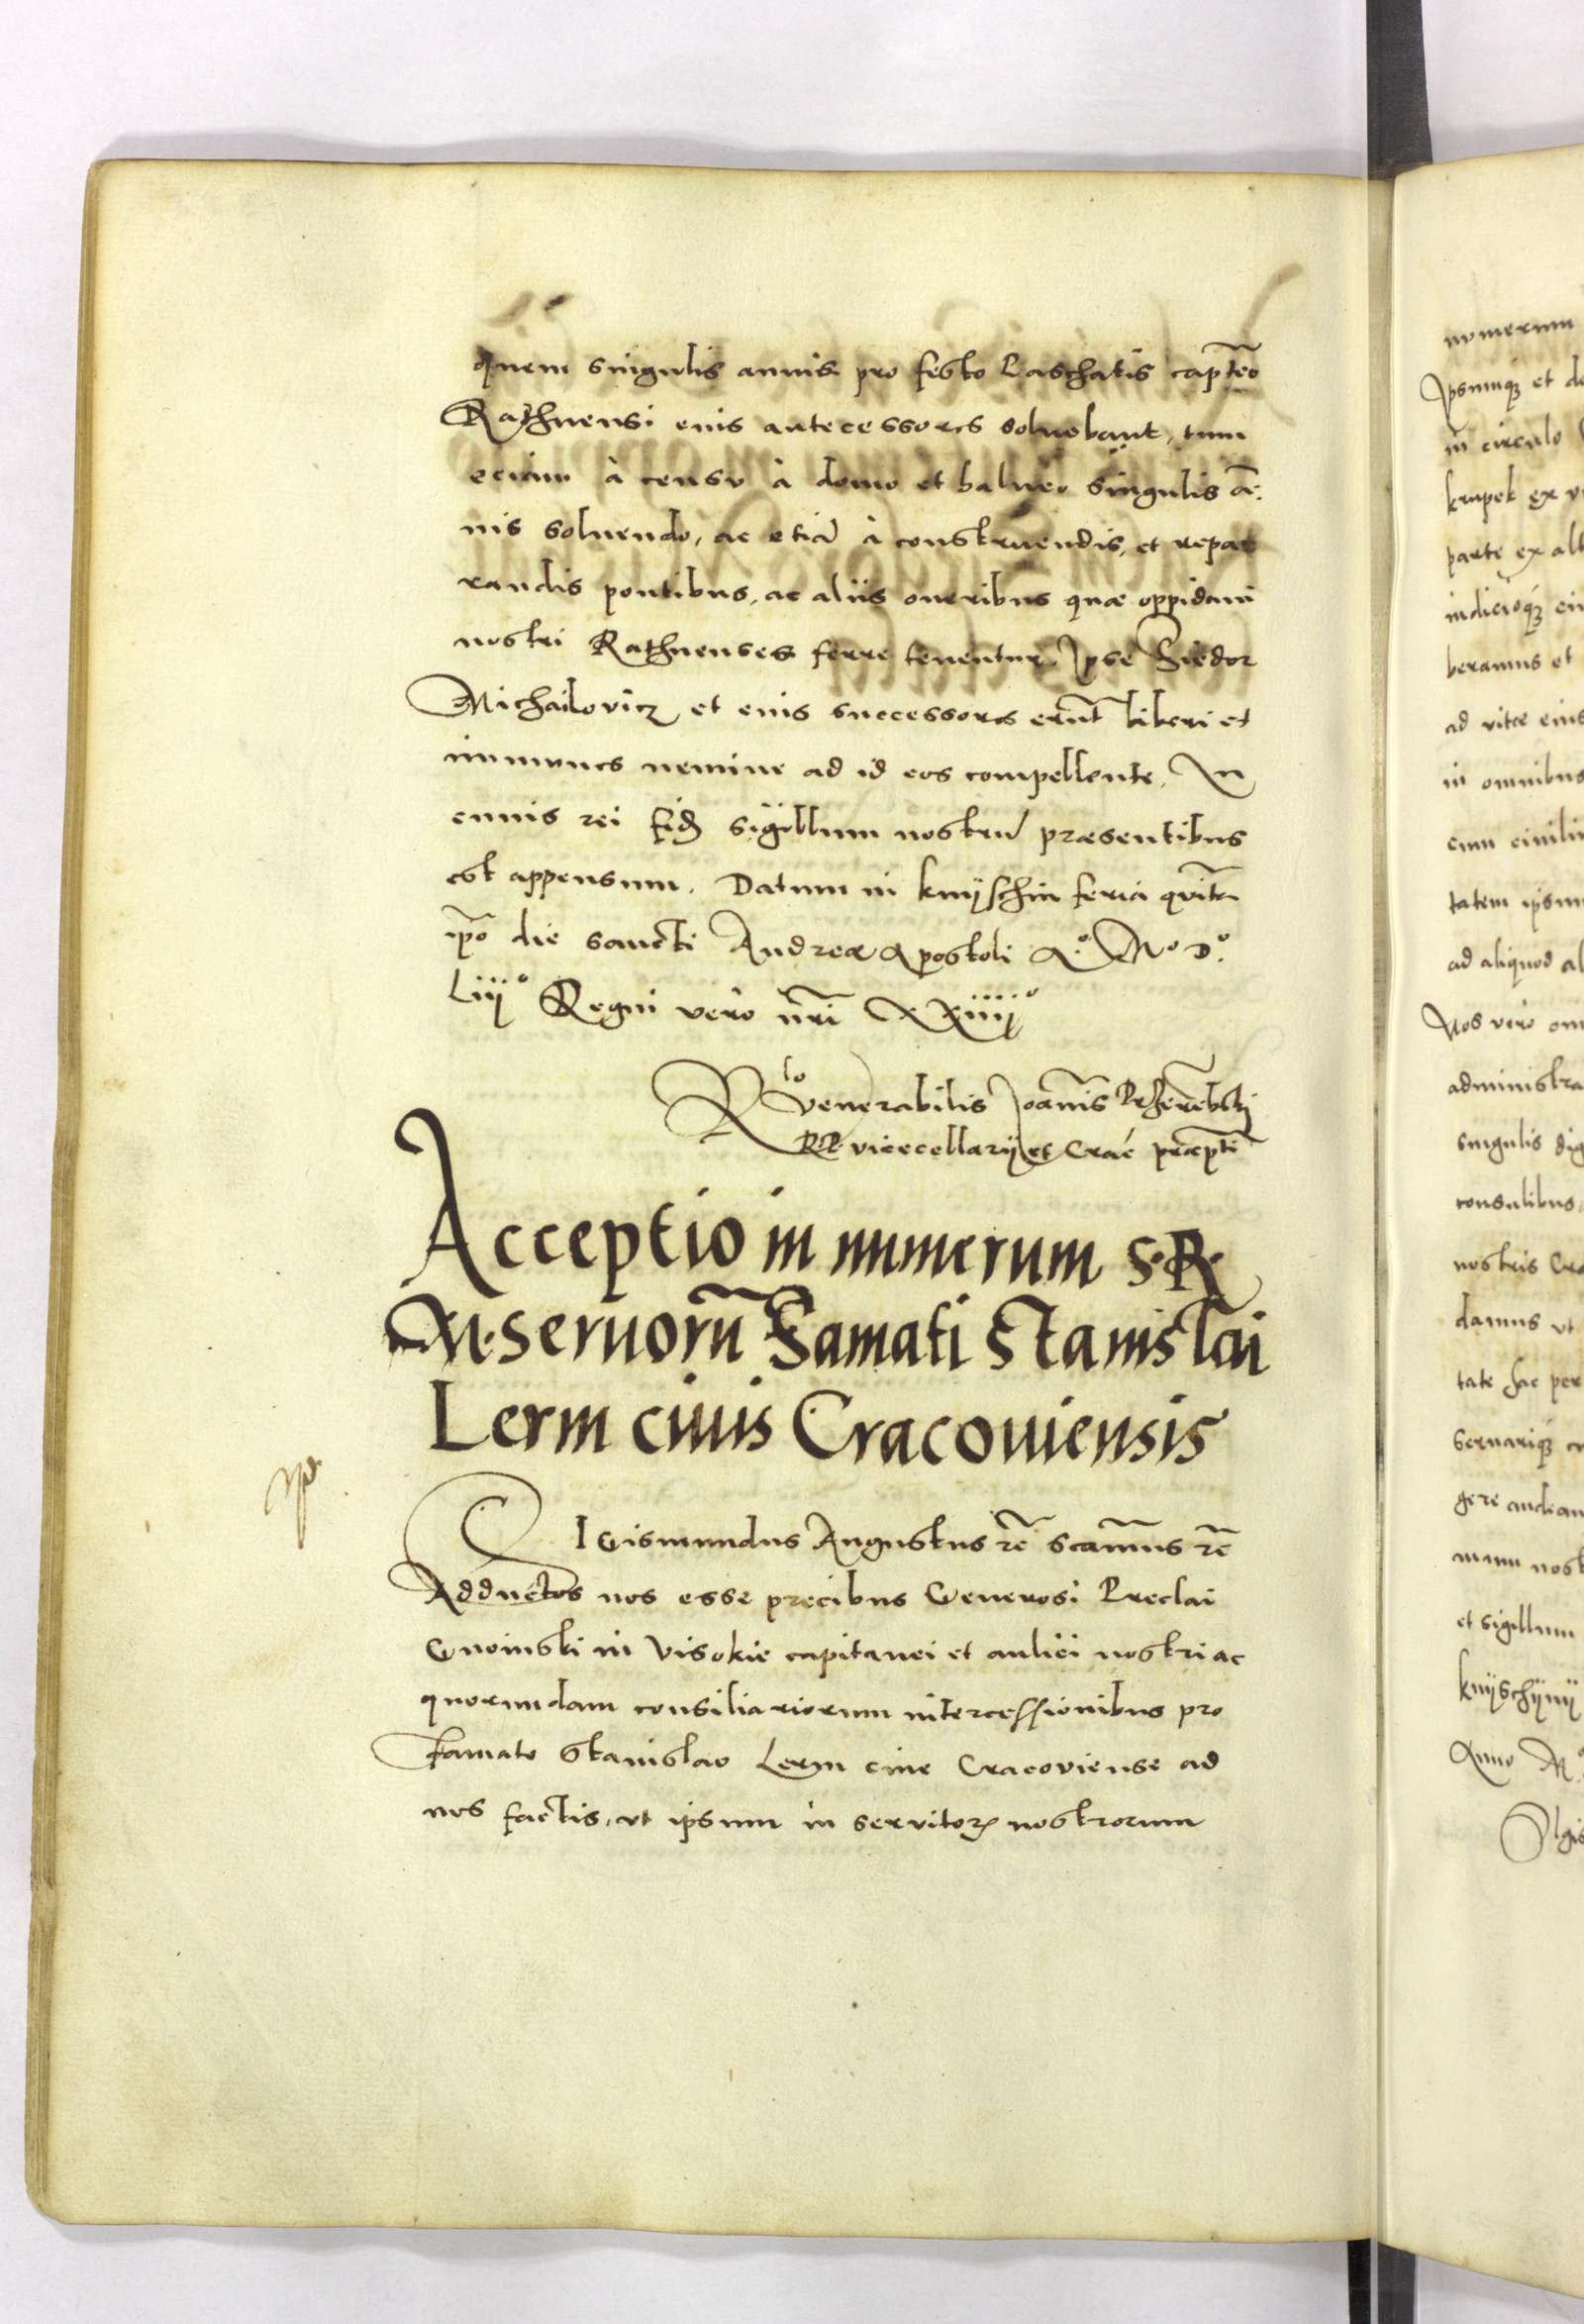 quem singulis annis pro festo Paschatis captēo
Rathnensi eius antecessores soluebant, tum
eciam à censu à domo et balneo singulis an̄:
nis soluendo, ac etiā à construendis, et repar
randis pontibus, ac aliis oneribus quae oppidani
nostri Rathnenses ferre tenentur, Ipse Fiedor
Michailovicz et eius successores erūt liberi et
immunes nemine ad id eos compellente, In
cuius rei fidē sigillum nostrū praesentibus
est appensum. Datum in knÿschin feria quīta
ip̄o die sancti Andreae Apostoli A.º Mº D.º
Liijº Regni vero n̄ri XXiiijº
Rlo venerabilis Joannis Przerēbski
R P vicecellarij et Crac̄ praep̄ti
Acceptio in numerum S. R.
M. seruorū Famati Stanislai
Lerm ciuis Cracouiensis
SIGismundus Augustus rē scamus rē
Adductos nos esse precibus Generosi Preclai
Gnoinski in Visokie capitanei et aulici nostri ac
quorundam consiliariorum intercessionibus pro
famato Stanislao Lerm ciue Cracoviense ad
nos factis, ut ipsum in servitorȝ nostrorum
numerum
Ipsumqȝ et de
in circulo
krupek ex v
parte ex alt
indicioqȝ ei
beramus et
ad vitae eius
in omnibus
cum ciuili
tatem ipsum
ad aliquod al
Nos vero om
administra
singulis dig
consulibus
nostris Cra
damus ut
tate hac per
seruariqȝ
gere audean
manu nost
et sigillum
knÿschÿnÿ
Anno M.